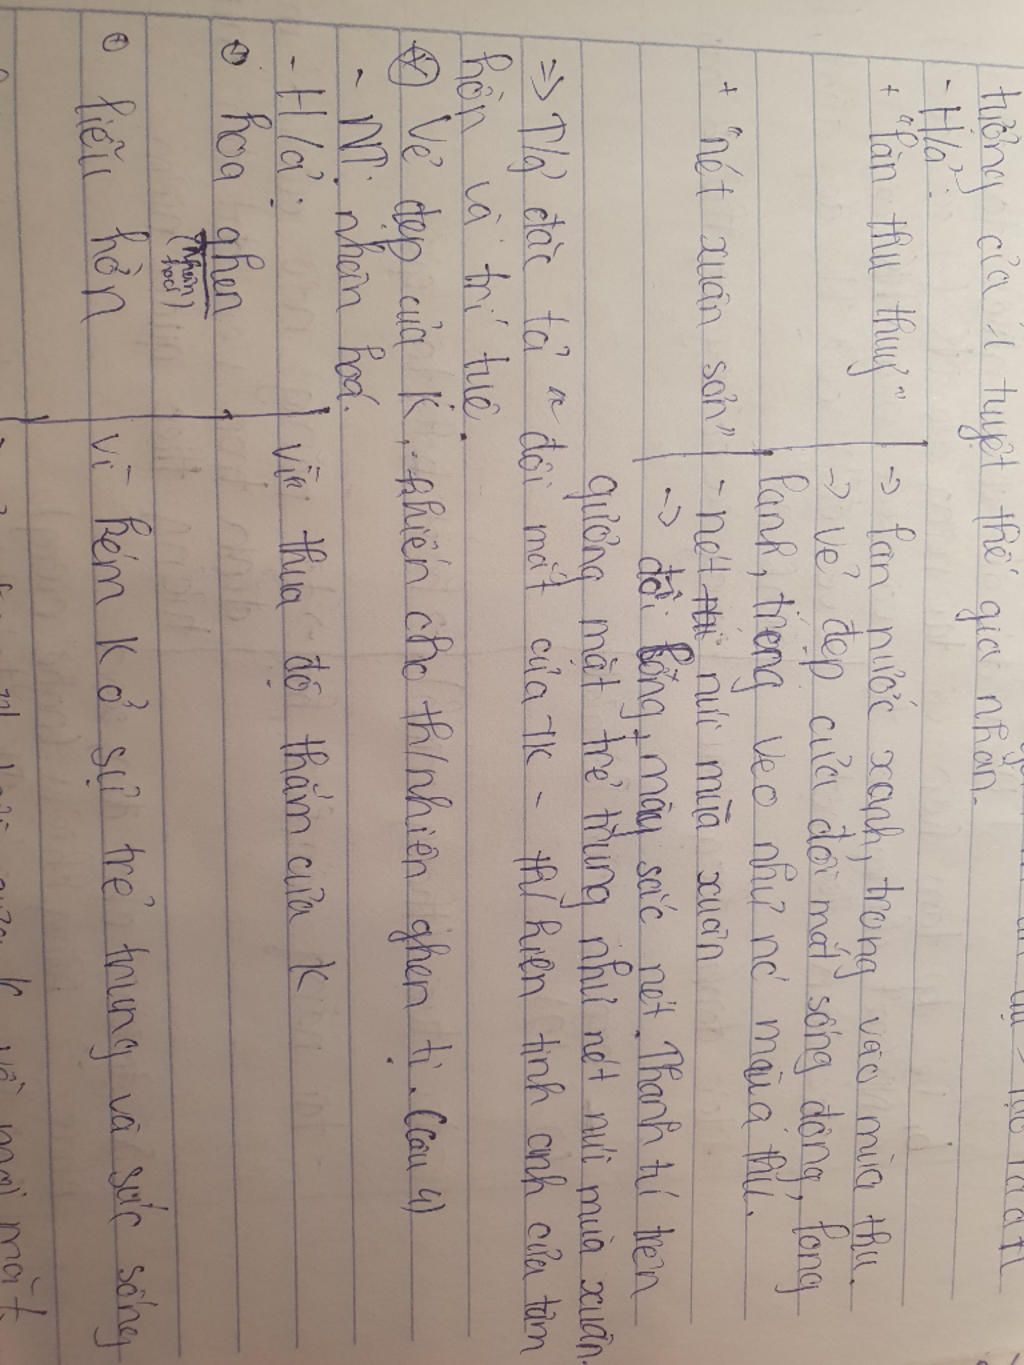 tưởng của 1 tuyệt thế giai nhân.
- H/ả:
+ "làn thu thuỷ" -> làn nước xanh, trong vào mùa thu.
-> vẻ đẹp của đôi mắt sống động, long
lanh, trong veo như nc mùa thu.
+ "nét xuân sơn" - nét núi mùa xuân
-> đôi lông mày sắc nét. Thanh tú trên
gương mặt trẻ trung như nét núi mùa xuân.
=> T/g đặc tả đôi mắt của TK - th/hiện tinh anh của tâm
hồn và trí tuệ.
(v) Vẻ đẹp của K, khiến cho th/nhiên ghen tị. (câu 4)
- NT: nhân hoá.
- H/ả: vì thua độ thắm của K
+ hoa ghen
(nhân hoá)
+ liễu hờn vì kém K ở sự trẻ trung và sức sống